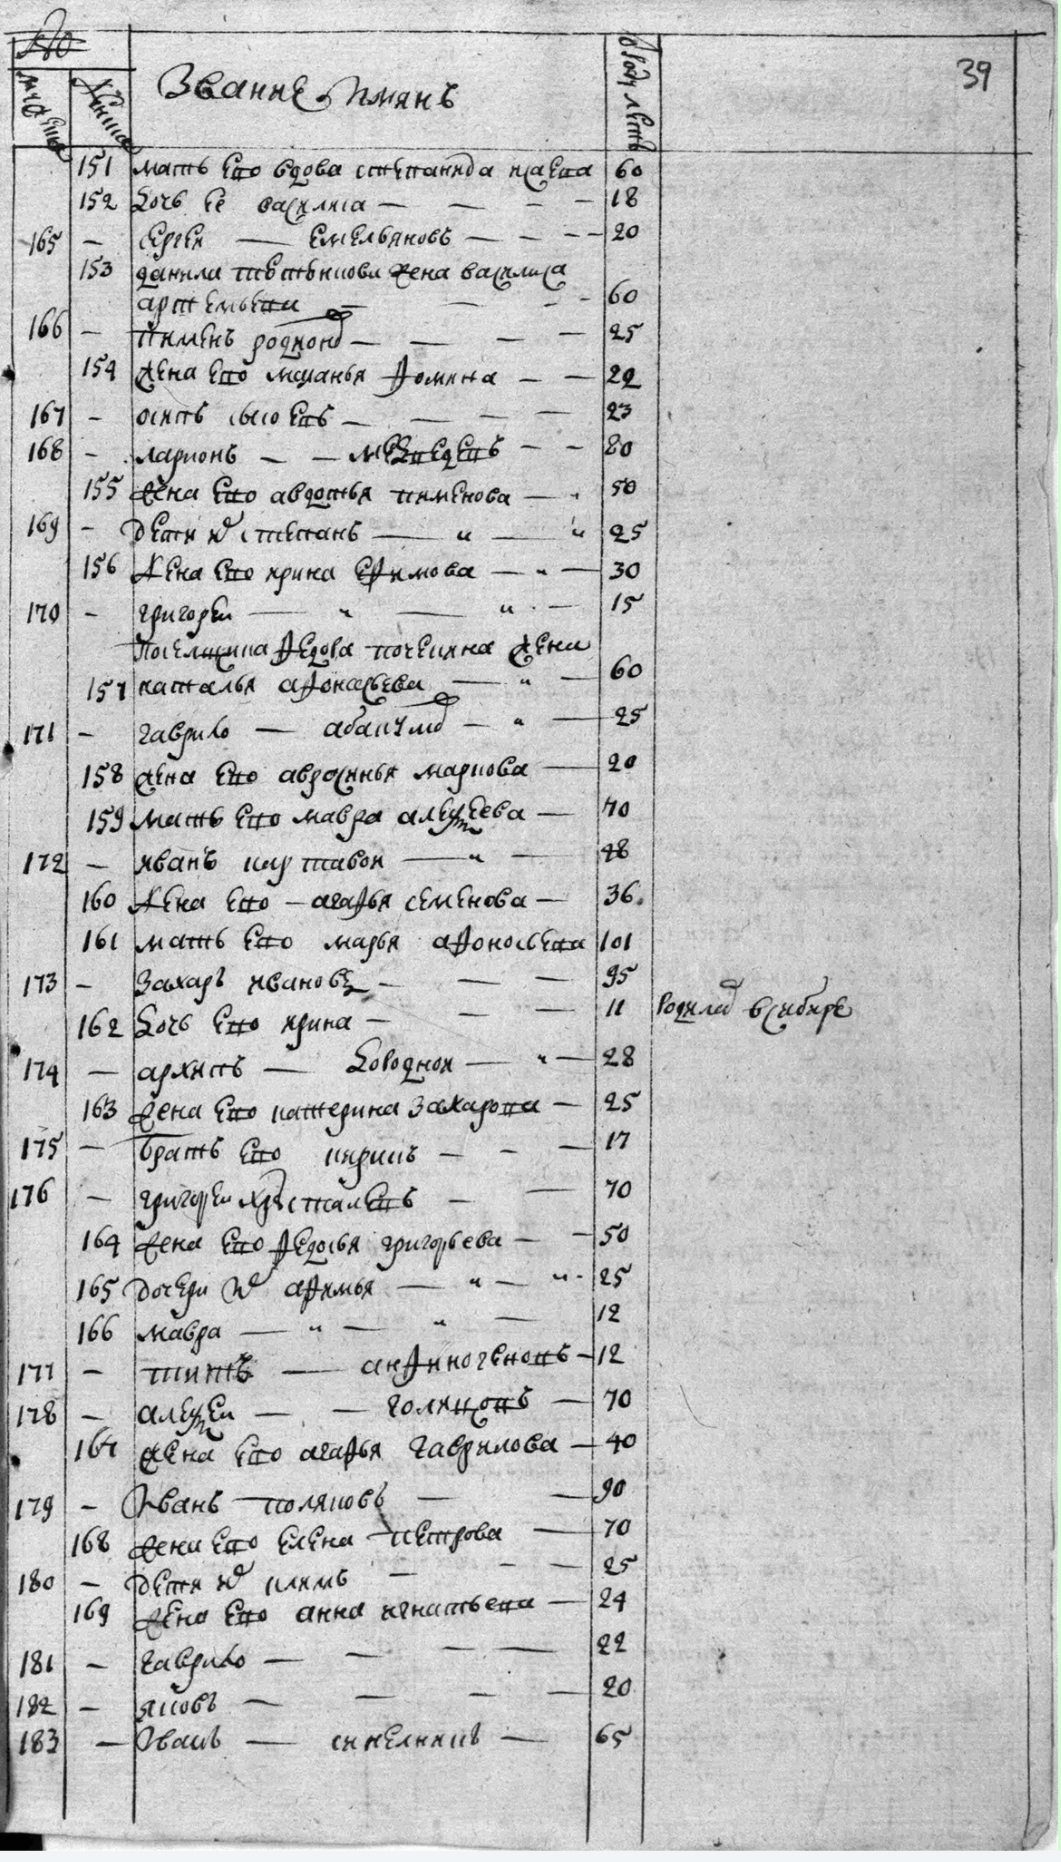 39
№
мужска женска Звание имянъ сколку летъ
151 мать ево вдова степанида исаева 60
152 дочь ее василиса — — — 18
165 — сергеи — емельяновъ — — — 20
153 данила жена василиса
артемьева — — — 60
166 — пименъ родионо — — — 25
154 жена ево маланья фомина — — 22
167 — осипъ — — — 23
168 — ларионъ — — медведевъ — — 80
155 жена ево авдотья пименова — 50
169 — дети их степанъ — " — " 25
156 жена ево ирина ефимова — " — 30
170 — григореи — " — " — 15
федора жена
157 наталья афонасьева — " — 60
171 — гаврило — — " — 25
158 жена ево авросинья маркова — 20
159 мать ево мавра алексеева — 70
172 — иванъ — " — 48
160 жена ево — агафья семенова — 36
161 мать ево марья афонасьева 101
173 — захаръ ивановъ — — — 95
162 дочь ево ирина — — — 11 родилас в сибире
174 — архипъ — — " — 28
163 жена ево катерина захарова — 25
175 — братъ ево кирикъ — — — 17
176 — григореи — — 70
164 жена ево федосья григорьева — — 50
165 дочери их афимья — " — " 25
166 мавра — " — " — 12
177 — титъ — анфиногеновъ — 12
178 — алексеи — — голяковъ — 70
167 жена ево агафья гаврилова — 40
179 — иванъ поляковъ — — 90
168 жена ево елена петрова — 70
180 — дети их климъ — — — 25
169 жена ево анна игнатьева — 24
181 — гаврило — — — — 22
182 — яковъ — — — — 20
183 — иванъ — синелникъ — 65